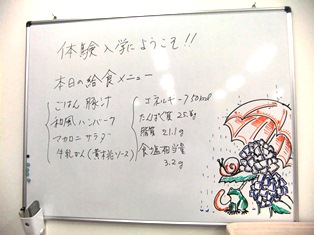 体験入学にようこそ!!
本日の給食メニュー
ごはん 豚汁
和風ハンバーグ
マカロニサラダ
牛乳かん(黄桃ソース)
エネルギー750kcal
たんぱく質 25.8g
脂質 21.1g
食塩相当量
3.2g